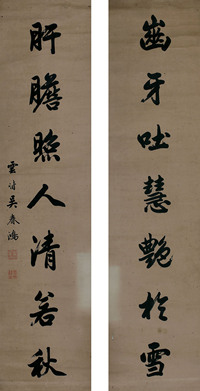 齒牙吐慧艷於雪
肝膽照人清若秋
雲甫吳春鴻